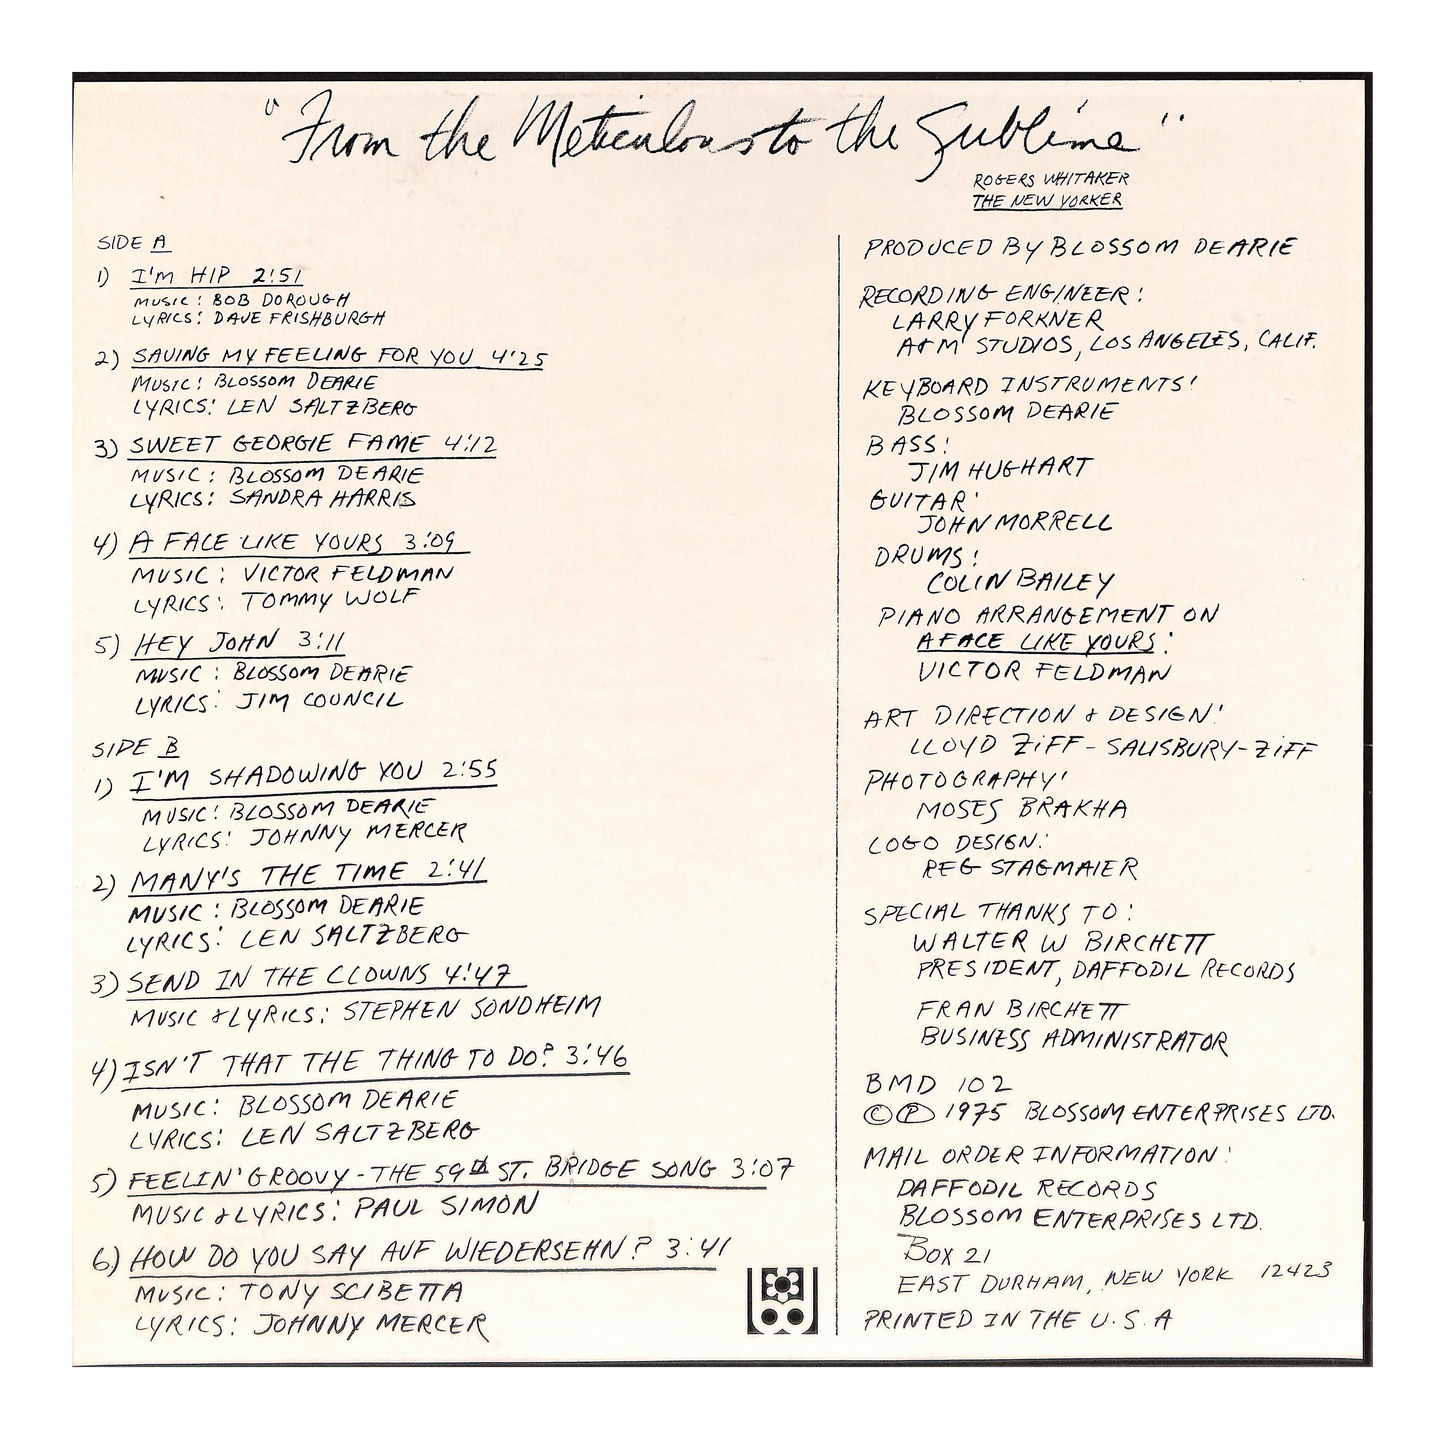 "From the Meticulous to the Sublime"
ROGERS WHITAKER
THE NEW YORKER
SIDE A
1) I'M HIP 2:51
MUSIC: BOB DOROUGH
LYRICS: DAVE FRISHBURGH
2) SAVING MY FEELING FOR YOU 4:25
MUSIC: BLOSSOM DEARIE
LYRICS: LEN SALTZBERG
3) SWEET GEORGIE FAME 4:12
MUSIC: BLOSSOM DEARIE
LYRICS: SANDRA HARRIS
4) A FACE LIKE YOURS 3:09
MUSIC: VICTOR FELDMAN
LYRICS: TOMMY WOLF
5) HEY JOHN 3:11
MUSIC: BLOSSOM DEARIE
LYRICS: JIM COUNCIL
SIDE B
1) I'M SHADOWING YOU 2:55
MUSIC: BLOSSOM DEARIE
LYRICS: JOHNNY MERCER
2) MANY'S THE TIME 2:41
MUSIC: BLOSSOM DEARIE
LYRICS: LEN SALTZBERG
3) SEND IN THE CLOWNS 4:47
MUSIC & LYRICS: STEPHEN SONDHEIM
4) ISN'T THAT THE THING TO DO? 3:46
MUSIC: BLOSSOM DEARIE
LYRICS: LEN SALTZBERG
5) FEELIN' GROOVY - THE 59th ST. BRIDGE SONG 3:07
MUSIC & LYRICS: PAUL SIMON
6) HOW DO YOU SAY AUF WIEDERSEHN? 3:41
MUSIC: TONY SCIBETTA
LYRICS: JOHNNY MERCER
PRODUCED BY BLOSSOM DEARIE
RECORDING ENGINEER:
LARRY FORKNER
A&M STUDIOS, LOS ANGELES, CALIF.
KEYBOARD INSTRUMENTS:
BLOSSOM DEARIE
BASS:
JIM HUGHART
GUITAR:
JOHN MORRELL
DRUMS:
COLIN BAILEY
PIANO ARRANGEMENT ON
A FACE LIKE YOURS:
VICTOR FELDMAN
ART DIRECTION & DESIGN:
LLOYD ZIFF - SALISBURY-ZIFF
PHOTOGRAPHY:
MOSES BRAKHA
LOGO DESIGN:
REG STAGMAIER
SPECIAL THANKS TO:
WALTER W BIRCHETT
PRESIDENT, DAFFODIL RECORDS
FRAN BIRCHETT
BUSINESS ADMINISTRATOR
BMD 102
© ℗ 1975 BLOSSOM ENTERPRISES LTD.
MAIL ORDER INFORMATION:
DAFFODIL RECORDS
BLOSSOM ENTERPRISES LTD.
BOX 21
EAST DURHAM, NEW YORK 12423
PRINTED IN THE U.S.A